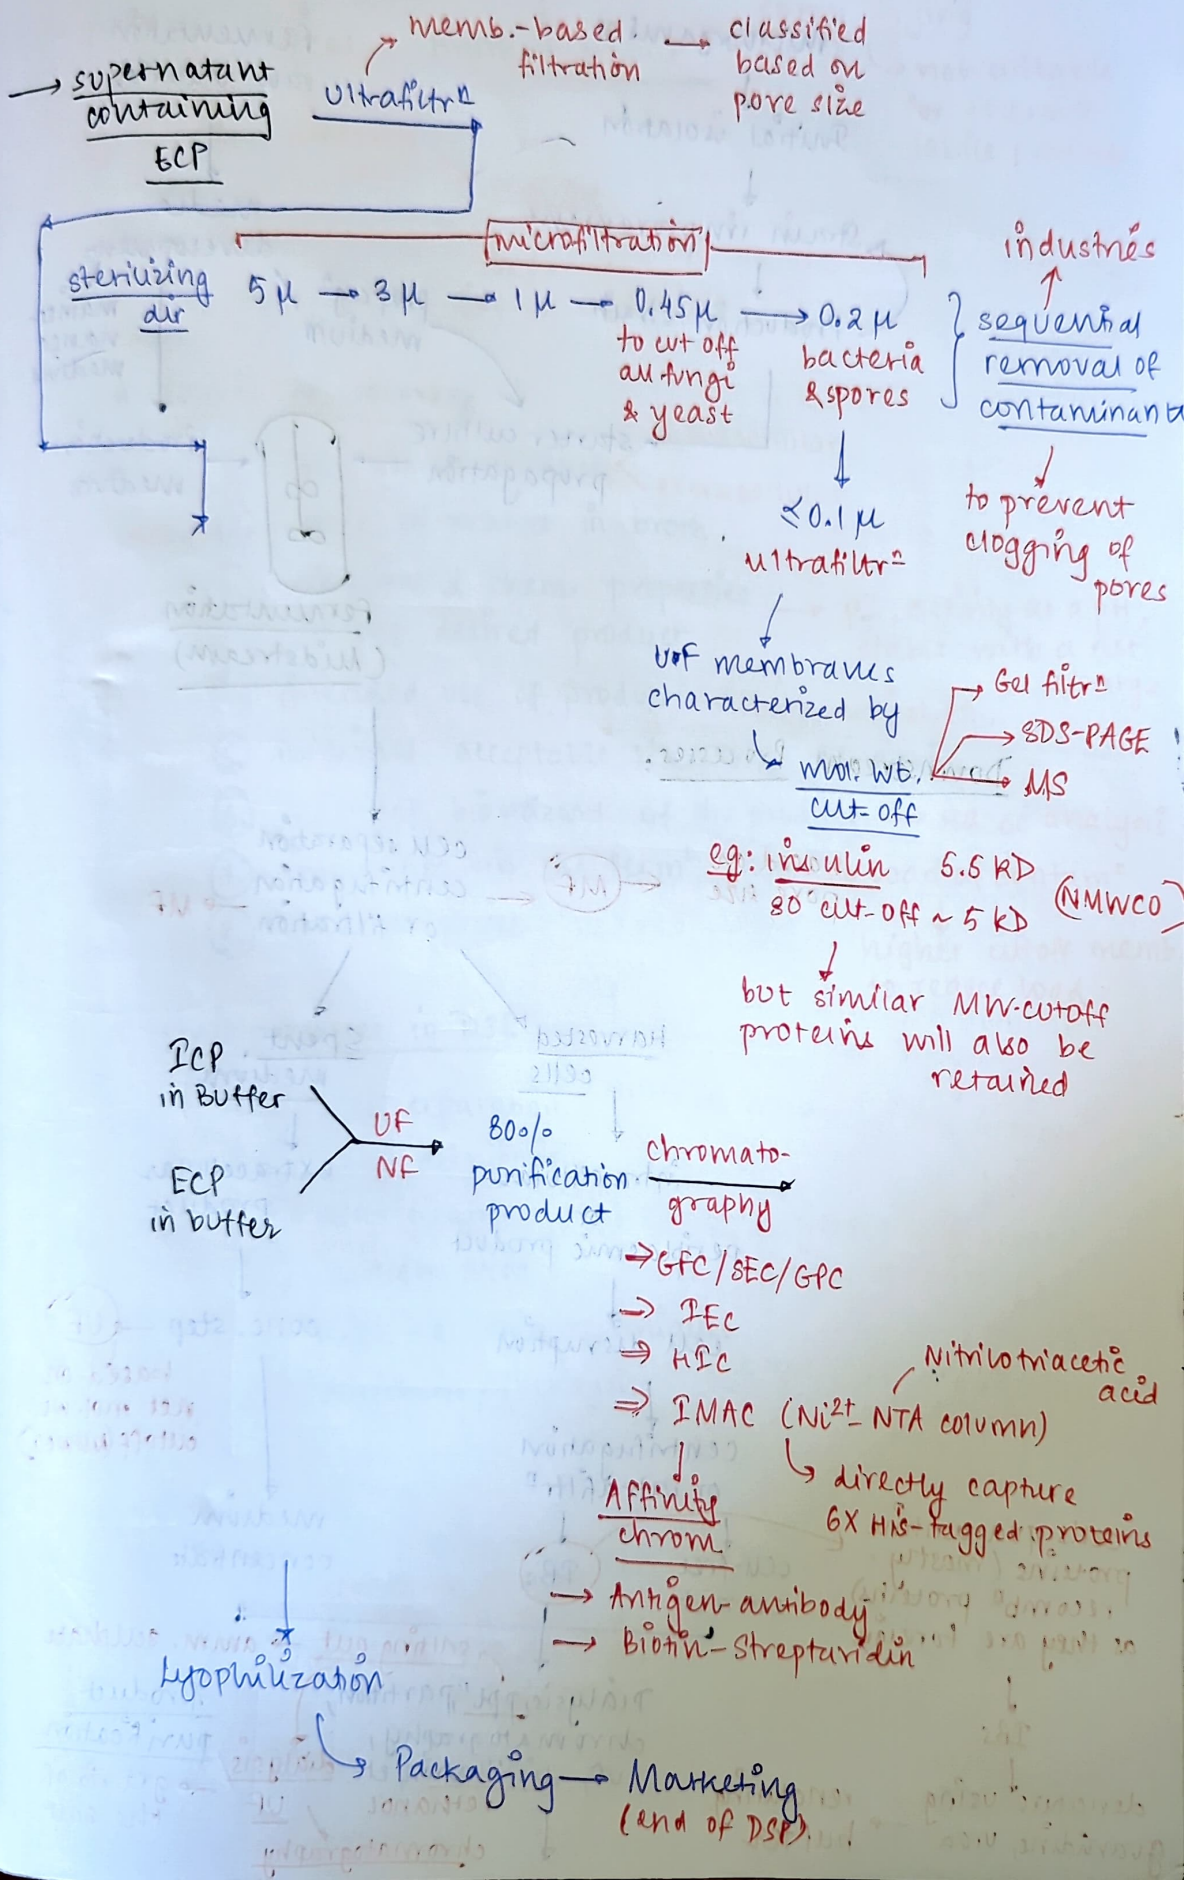 memb.-based → classified
filtration based on
pore size
→ supernatant
containing
ECP
Ultrafiltrⁿ
microfiltration
industries
sterilizing
air
5 μ → 3 μ → 1 μ → 0.45 μ → 0.2 μ
to cut off
all fungi
& yeast
bacteria
& spores
sequential
removal of
contaminant
to prevent
clogging of
pores
≤0.1 μ
Ultrafiltrⁿ
U.F membranes
characterized by
mol. wt.
cut-off
→ Gel filtrⁿ
→ SDS-PAGE
→ MS
eg: insulin 5.5 KD
so cut-off ~ 5 KD
(NMWCO)
but similar MW-cutoff
proteins will also be
retained
ICP
in Buffer
ECP
in buffer
UF
NF
80%
purification
product
chromato-
graphy
→ GFC/SEC/GPC
→ IEC
⇒ HIC
⇒ IMAC (Ni²⁺- NTA column)
Nitrilotriacetic
acid
directly capture
6X His-tagged proteins
Affinity
chrom.
→ Antigen-antibody
→ Biotin-Streptavidin
Lyophilization
Packaging → Marketing
(end of DSP).